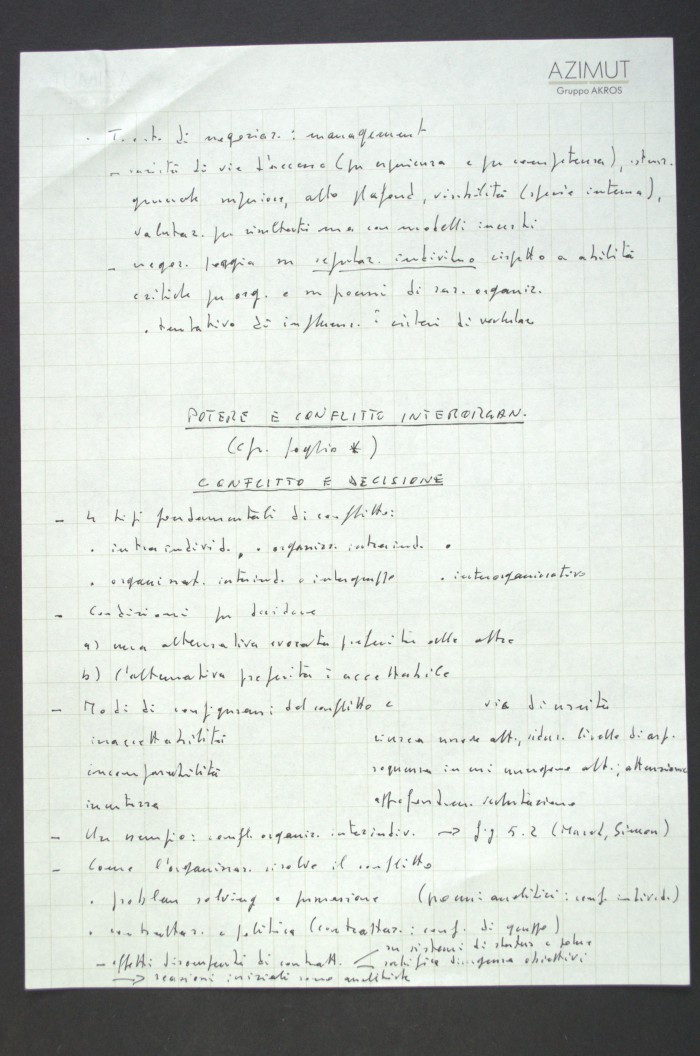 AZIMUT
Gruppo AKROS
di negoziaz. : management
- varietà di vie d'accesso (per esperienza e per competenza),
inferiore, alto plafond, visibilità (specie interna),
valutaz. per risultati ma con modelli incerti
- negoz. poggia su reputaz. individuo rispetto a abilità
critiche per org. e su processi di raz. organizz.
. tentativo di influenz. i criteri di
POTERE E CONFLITTO INTERORGAN.
(cfr. foglio *)
CONFLITTO E DECISIONE
- 4 tipi fondamentali di conflitto:
. intraindivid. . organizz. intraind.
. organizzat. interind. o intergruppo . interorganizzativo
- Condizioni per decidere
a) una alternativa evocata preferita alle altre
b) l'alternativa preferita è accettabile
- Modi di configurarsi del conflitto e via di uscita
inaccettabilità ricerca nuove alt., riduz. livello di asp.
incomparabilità sequenza in cui emergono alt.; attenzione
incertezza approfondim. valutazione
- Un esempio: confl. organizz. interindiv. → fig 5.2 (March, Simon)
- Come l'organizzaz. risolve il conflitto
. problem solving e persuasione (processi analitici: conf. individ.)
. contrattaz. e politica (contrattaz.: conf. di gruppo)
- effetti dirompenti di contratt. su sistemi di status e potere
ratifica divergenza obiettivi
→ reazioni iniziali sono analitiche